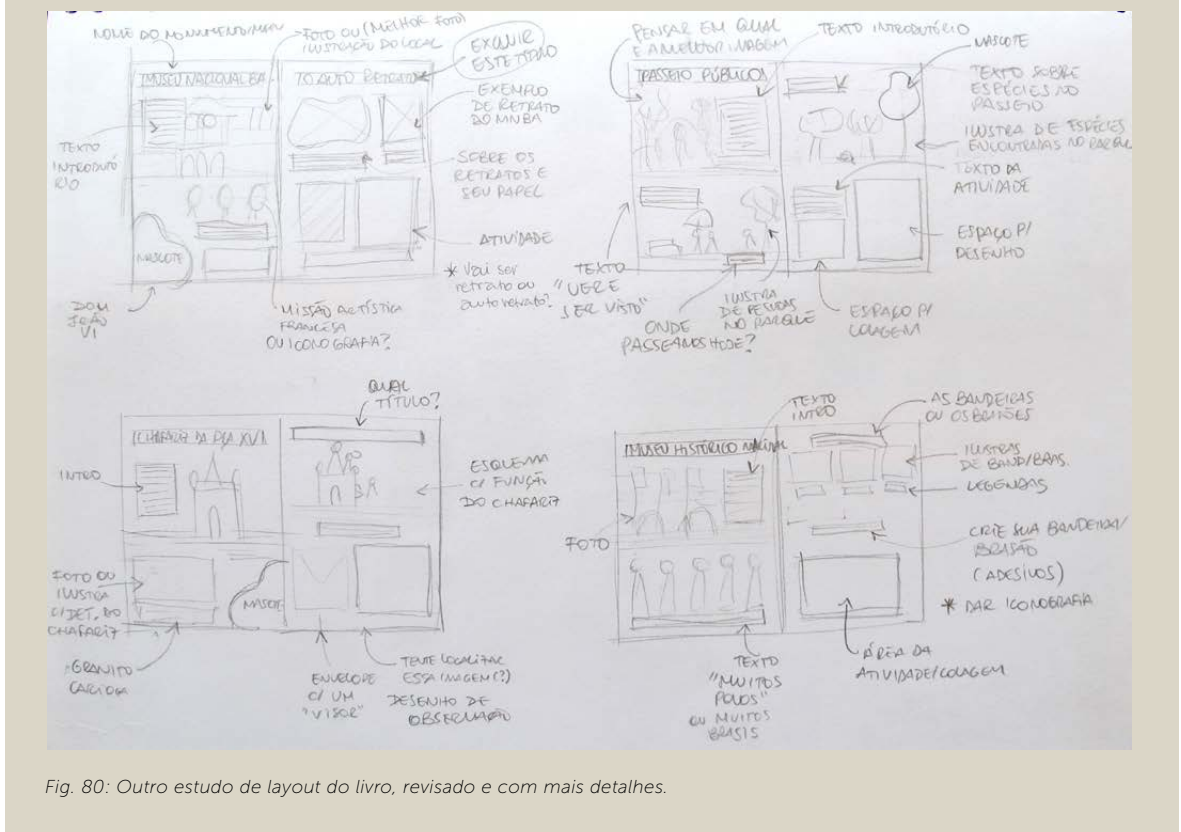 NOME DO MONUMENTO/MUSEU
FOTO OU (MELHOR FOTO)
ILUSTRAÇÃO DO LOCAL
EXCLUIR
ESTE TÍTULO
MUSEU NACIONAL BA
AUTO RETRATO
EXEMPLO
DE RETRATO
DO MNBA
TEXTO
INTRODUTÓ
RIO
SOBRE OS
RETRATOS E
SEU PAPEL
ATIVIDADE
* Vai ser
retrato ou
autoretrato?
MASCOTE
DOM
JOÃO
VI
MISSÃO ARTÍSTICA
FRANCESA
OU ICONOGRAFIA?
PENSAR EM QUAL
É A MELHOR IMAGEM
TEXTO INTRODUTÓRIO
MASCOTE
PASSEIO PÚBLICO
TEXTO SOBRE
ESPÉCIES NO
PASSEIO
ILUSTRA DE ESPÉCIES
ENCONTRADAS NO PARQUE
TEXTO DA
ATIVIDADE
ESPAÇO P/
DESENHO
TEXTO
"VER E
SER VISTO"
ONDE
PASSEAMOS HOJE?
ILUSTRA
DE PESSOAS
NO PARQUE
ESPAÇO P/
COLAGEM
QUAL
TÍTULO?
CHAFARIZ DA PÇA XV
INTRO
ESQUEMA
C/ FUNÇÃO
DO CHAFARIZ
FOTO OU
ILUSTRA
C/ DET. DO
CHAFARIZ
MASCOTE
GRANITO
CARIOCA
ENVELOPE
C/ UM
"VISOR"
TENTE LOCALIZAR
ESSA IMAGEM(?)
DESENHO DE
OBSERVAÇÃO
TEXTO
INTRO
AS BANDEIRAS
OU OS BRASÕES
MUSEU HISTÓRICO NACIONAL
ILUSTRAS
DE BAND/BRAS.
LEGENDAS
FOTO
CRIE SUA BANDEIRA/
BRASÃO
(ADESIVOS)
* DAR ICONOGRAFIA
TEXTO
"MUITOS
POVOS"
OU MUITOS
BRASIS
ÁREA DA
ATIVIDADE/COLAGEM
Fig. 80: Outro estudo de layout do livro, revisado e com mais detalhes.